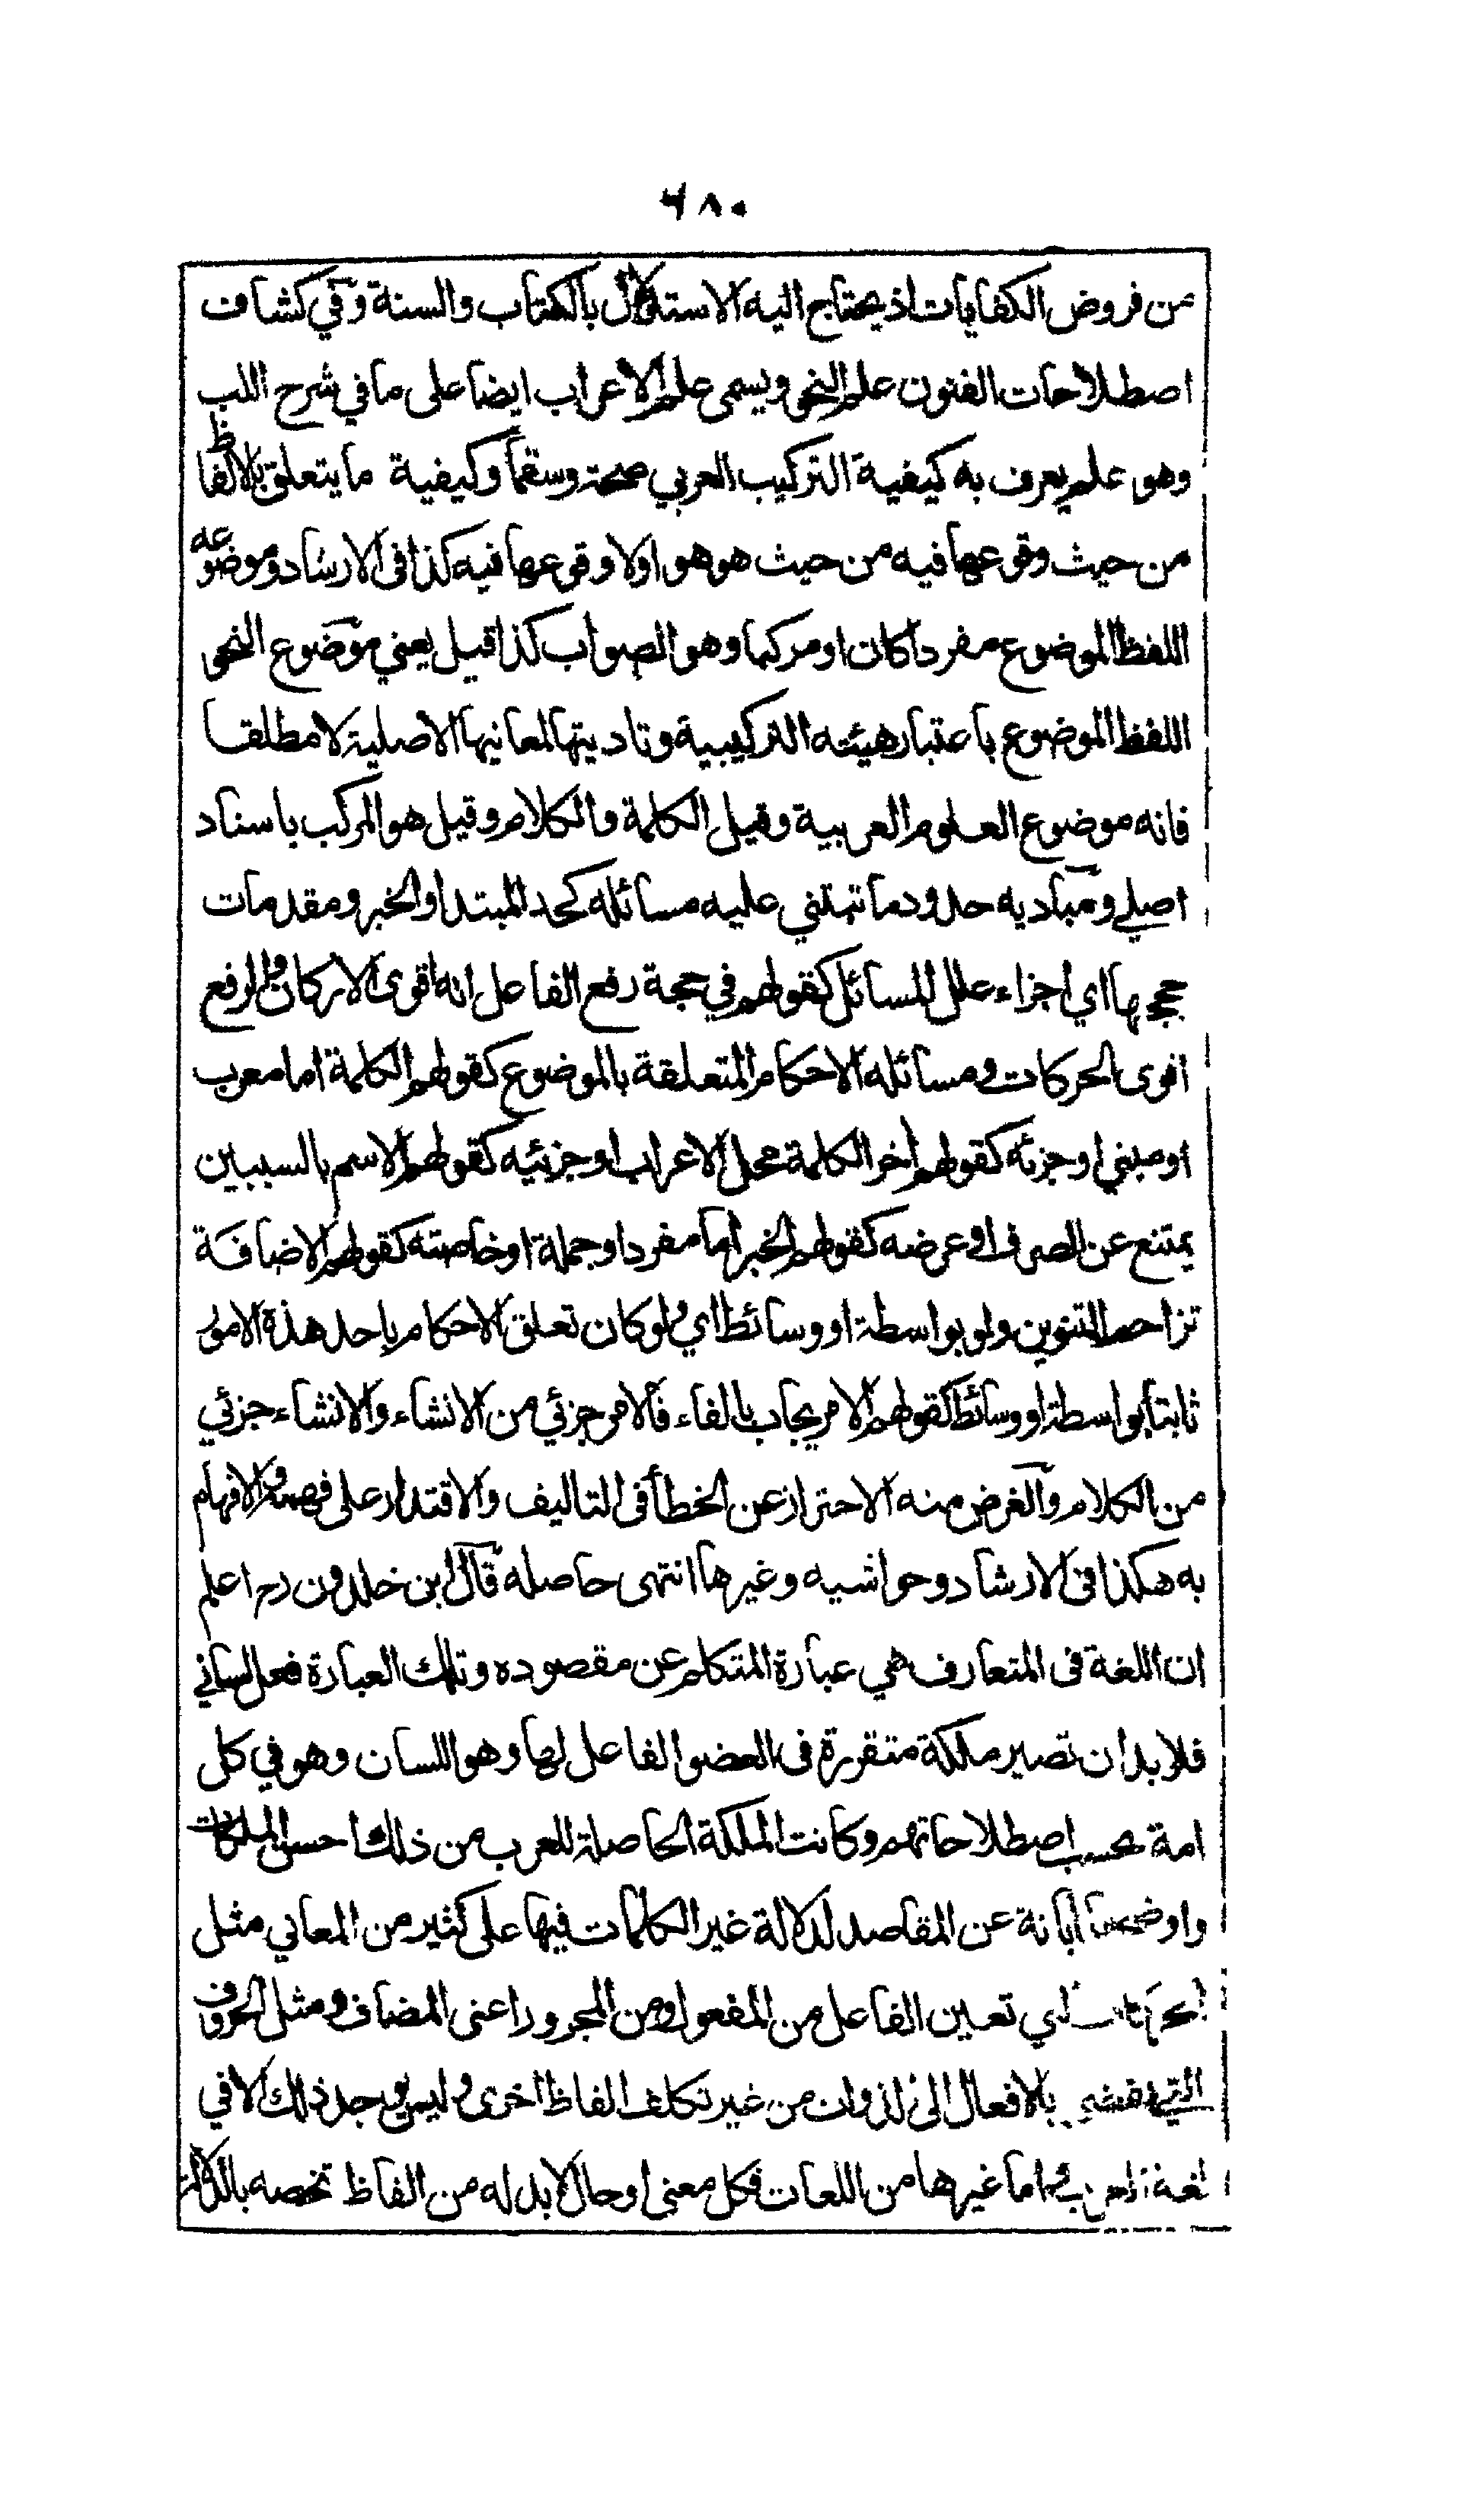 ٦٨٠
من فروض الكفايات اذ يحتاج اليه الاستدلال بالكتاب والسنة وفي كشاف
اصطلاحات الفنون علم النحو ويسمى علم الاعراب ايضا على ما في شرح اللب
وهو علم يعرف به كيفية التركيب العربي صحة وسقما وكيفية ما يتعلق بالالفاظ
من حيث وقوعها فيه من حيث هو هو اولا وقوعها فيه كذا في الارشاد وموضوعه
اللفظ الموضوع مفردا كان او مركبا وهو الصواب كذا قيل يعني موضوع النحو
اللفظ الموضوع باعتبار هيئته التركيبية وتاديتها لمعانيها الاصلية لا مطلقا
فانه موضوع العلوم العربية وقيل الكلمة والكلام وقيل هو المركب باسناد
اصلي ومباديه حدود ما تبتني عليه مسائله كحد المبتدا والخبر ومقدمات
حججها اي اجزاء علل المسائل كقولهم في حجة رفع الفاعل انه اقوى الاركان والرفع
اقوى الحركات ومسائله الاحكام المتعلقة بالموضوع كقولهم الكلمة اما معرب
او مبني او جزئه كقولهم اخر الكلمة محل الاعراب او جزئيه كقولهم الاسم بالسببين
يمتنع عن الصرف او عرضه كقولهم الخبر اما مفرد او جملة او خاصته كقولهم الاضافة
تزاحم التنوين ولو بواسطة او وسائط اي ولو كان تعلق الاحكام باحد هذة الامور
ثابتا بواسطة او وسائط كقولهم الامر يجاب بالفاء فالامر جزئي من الانشاء والانشاء جزئي
من الكلام والغرض منه الاحتراز عن الخطأ في التاليف والاقتدار على فهمه والافهام
به هكذا في الارشاد وحواشيه وغيرها انتهى حاصله قال ابن خلدون رح اعلم
ان اللغة في المتعارف هي عبارة المتكلم عن مقصوده وتلك العبارة فعل لساني
فلا بد ان تصير ملكة متقررة في العضو الفاعل لها وهو اللسان وهو في كل
امة بحسب اصطلاحاتهم وكانت الملكة الحاصلة للعرب من ذلك احسن الملكات
واوضحها ابانة عن المقاصد لدلالة غير الكلمات فيها على كثير من المعاني مثل
الحركات التي تعين الفاعل من المفعول ومن المجرور اعنى المضاف ومثل الحروف
التي تفضي بالافعال الى الذوات من غير تكلف الفاظ اخرى وليس يوجد ذلك الا في
لغة العرب اما غيرها من اللغات فكل معنى او حال لا بد له من الفاظ تخصه بالدلالة